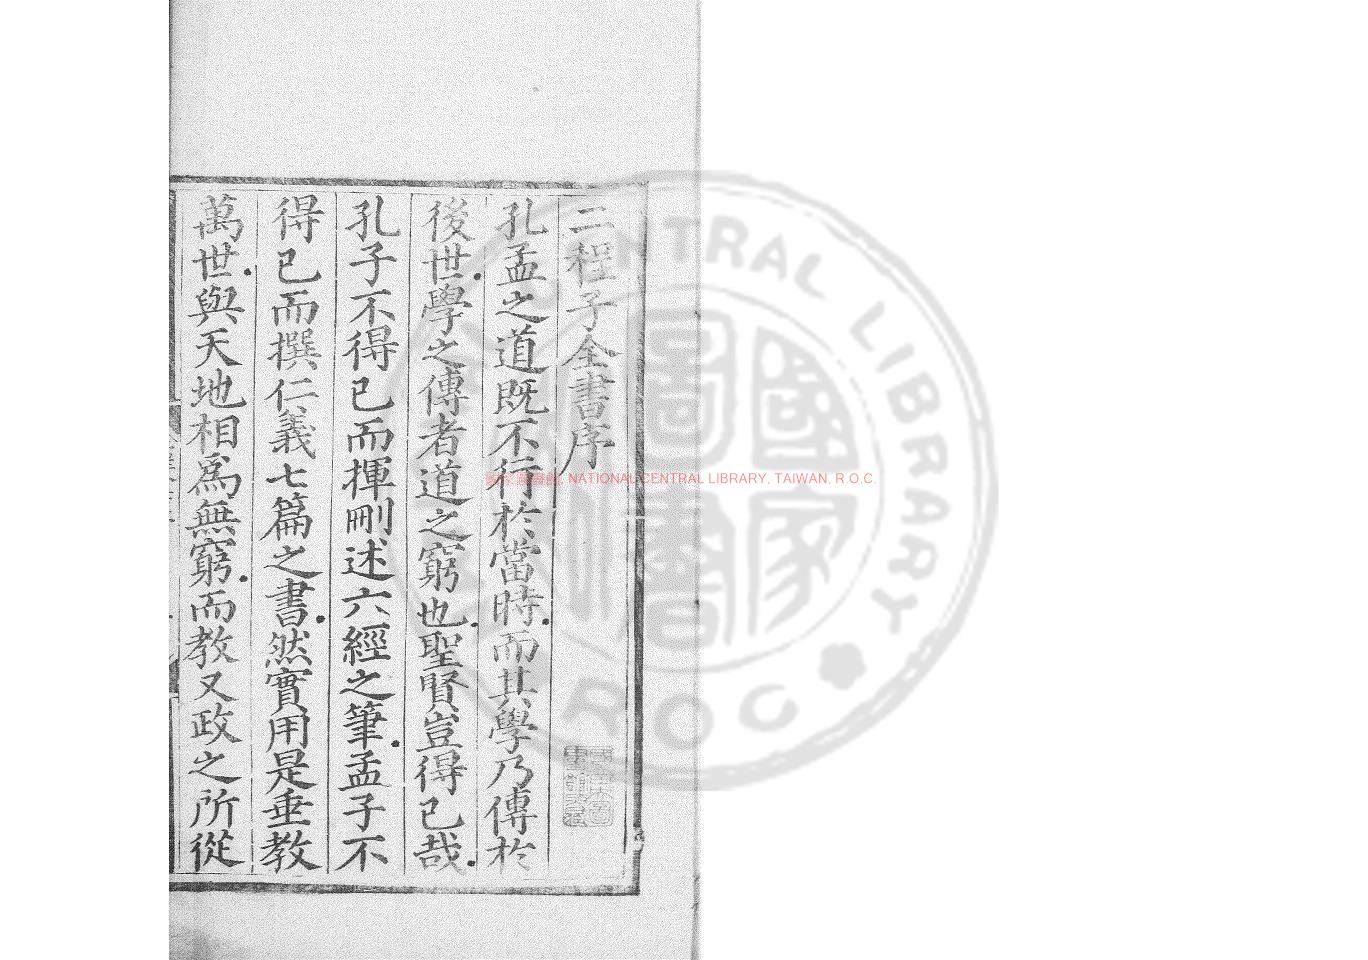 二程子全書序
孔孟之道既不行於當時而其學乃傳於
後世學之傳者道之窮也聖賢豈得已哉
孔子不得已而揮刪述六經之筆孟子不
得已而撰仁義七篇之書然實用是垂教
萬世與天地相爲無窮而教又政之所從
國家圖書館, NATIONAL CENTRAL LIBRARY, TAIWAN, R.O.C.
CENTRAL LIBRARY
R O C
國家圖書